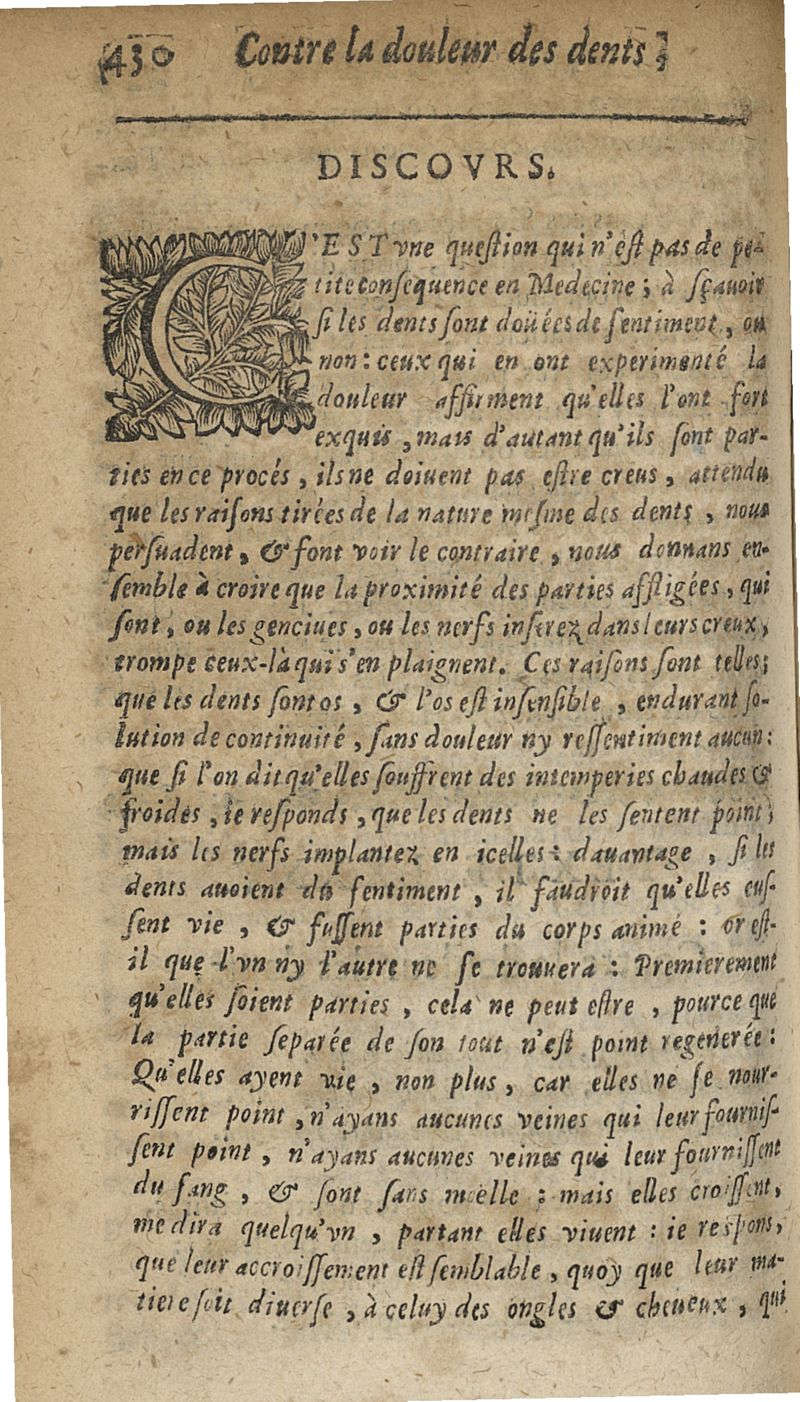 430 Contre la douleur des dents,
DISCOVRS.
C'EST vne queſtion qui n'eſt pas de pe-
tite conſequence en Medecine ; à ſçauoir
ſi les dents ſont doüées de ſentiment , ou
non : ceux qui en ont experimenté la
douleur affirment qu'elles l'ont fort
exquis , mais d'autant qu'ils ſont par-
ties en ce procés , ils ne doiuent pas eſtre creus , attendu
que les raiſons tirées de la nature meſme des dents , nous
perſuadent , & font voir le contraire , nous donnans en-
ſemble à croire que la proximité des parties affligées , qui
ſont , ou les genciues , ou les nerfs inſerez dans leurs creux ,
trompe ceux-là qui s'en plaignent. Ces raiſons ſont telles ;
que les dents ſont os , & l'os eſt inſenſible , endurant ſo-
lution de continuité , ſans douleur ny reſſentiment aucun :
que ſi l'on dit qu'elles ſouffrent des intemperies chaudes &
froides , ie reſponds , que les dents ne les ſentent point ;
mais les nerfs implantez en icelles : dauantage , ſi les
dents auoient du ſentiment , il faudroit qu'elles euſ-
ſent vie , & fuſſent parties du corps animé : or eſt-
il que l'vn ny l'autre ne ſe trouuera : Premierement
qu'elles ſoient parties , cela ne peut eſtre , pource que
la partie ſeparée de ſon tout n'eſt point regenerée :
Qu'elles ayent vie , non plus , car elles ne ſe nour-
riſſent point , n'ayans aucunes veines qui leur fourniſ-
ſent point , n'ayans aucunes veines qui leur fourniſſent
du ſang , & ſont ſans moelle : mais elles croiſſent ,
me dira quelqu'vn , partant elles viuent : ie reſpons ,
que leur accroiſſement eſt ſemblable , quoy que leur ma-
tiere ſoit diuerſe , à celuy des ongles & cheueux , qui